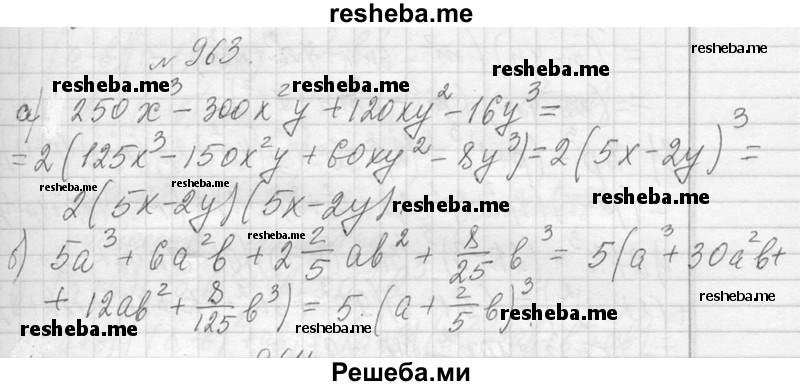 resheba.me
№ 963.
resheba.me resheba.me resheba.me resheba.me
а) 250x³ − 300x²y + 120xy² − 16y³ =
= 2(125x³ − 150x²y + 60xy² − 8y³) = 2(5x − 2y)³ =
resheba.me resheba.me resheba.me resheba.me
2(5x − 2y)(5x − 2y)
б) 5a³ + 6a²b + 2 2/5 ab² + 8/25 b³ = 5(a³ + 30a²b +
+ 12ab² + 8/125 b³) = 5·(a + 2/5 b)³.
resheba.me resheba.me resheba.me resheba.me
Решеба.ми